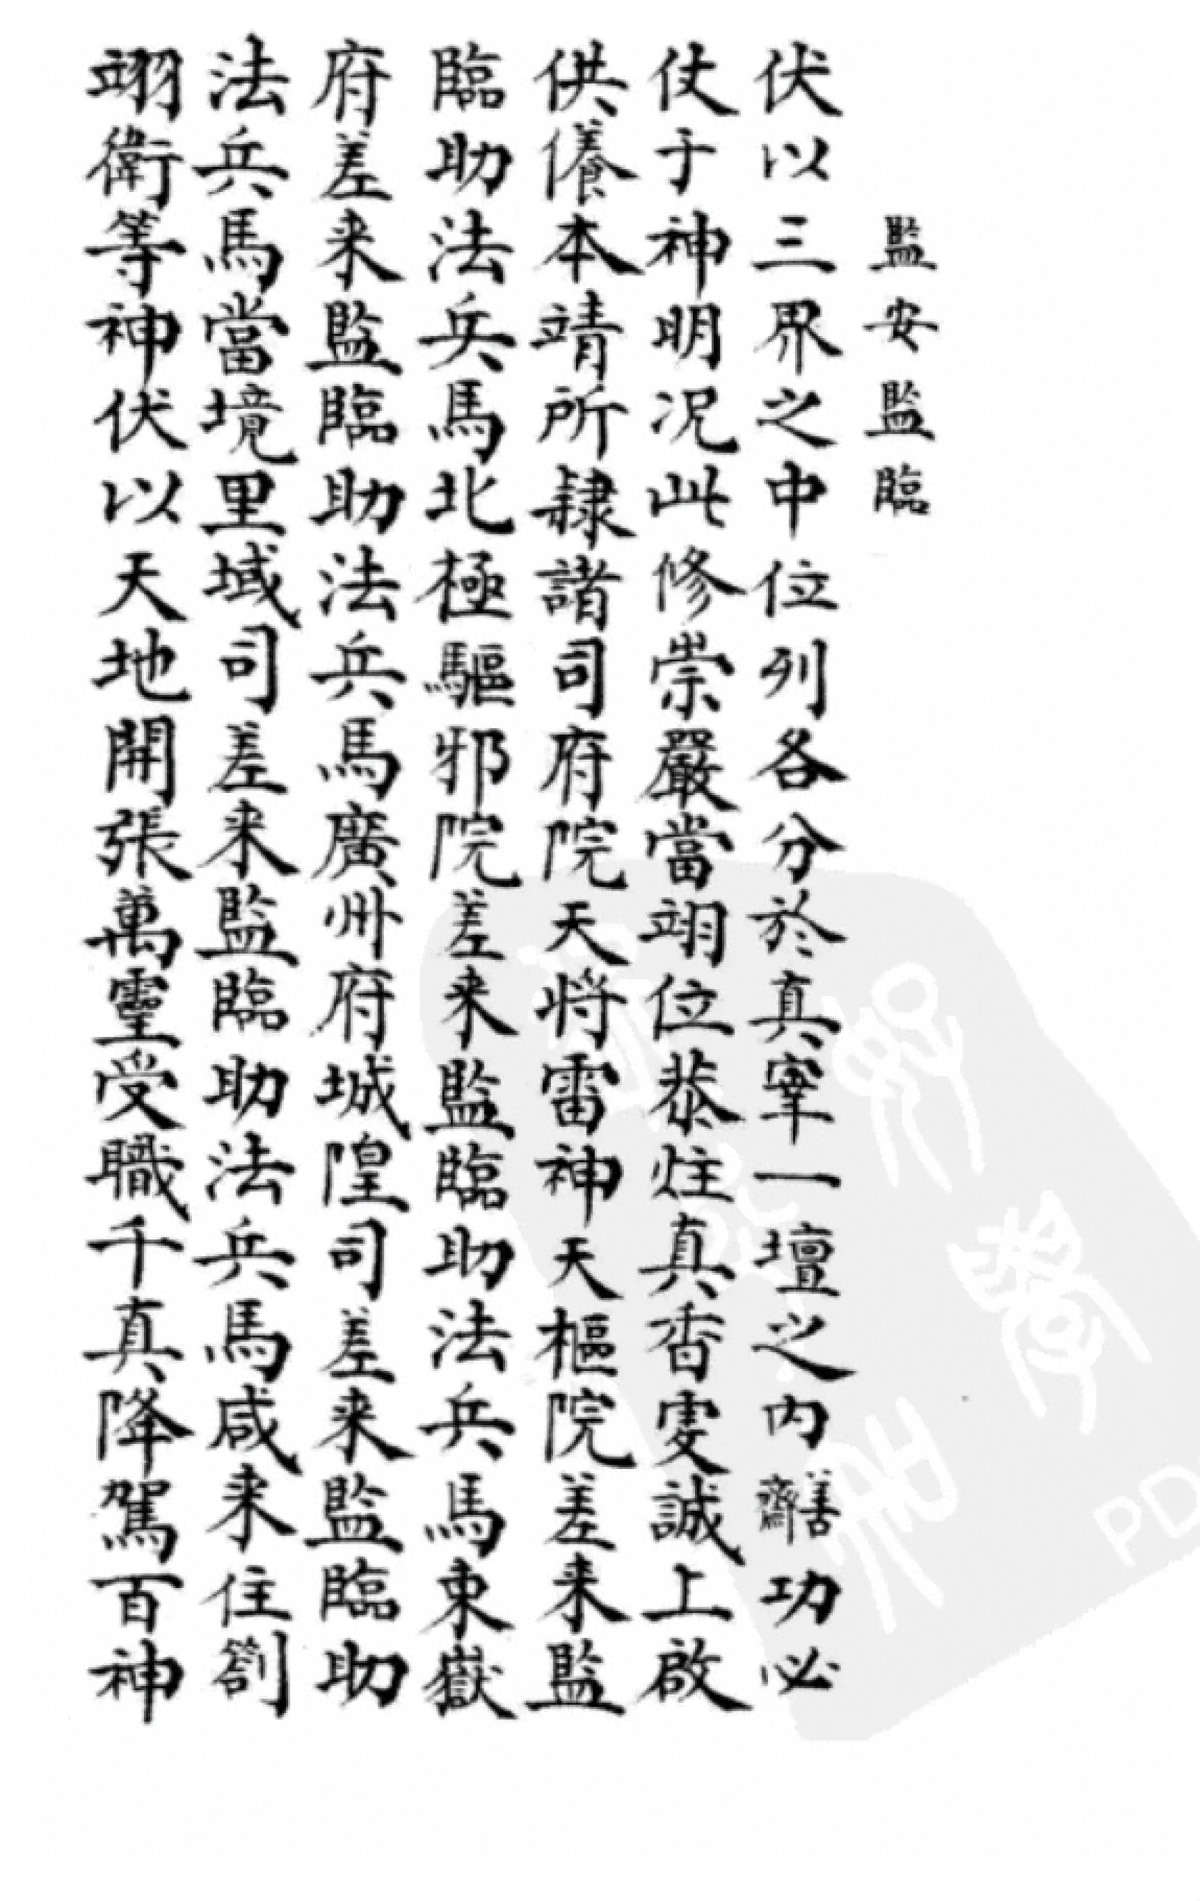 監安監臨
伏以三界之中位列各分於真宰一壇之内善齋功必
仗于神明况此修崇嚴當翊位恭炷真香虔誠上啟
供養本靖所隸諸司府院天将雷神天樞院差来監
臨助法兵馬北極驅邪院差来監臨助法兵馬東嶽
府差来監臨助法兵馬廣州府城隍司差来監臨助
法兵馬當境里域司差来監臨助法兵馬咸来住劄
翊衛等神伏以天地開張萬靈受職千真降駕百神
PD